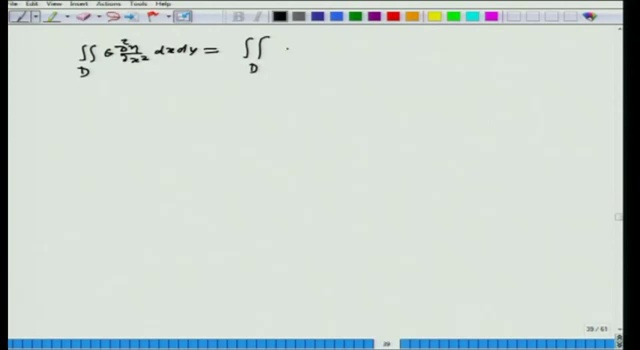 File Edit View Insert Actions Tools Help
B
∬_D G ∂²η/∂x² dx dy = ∬_D
39